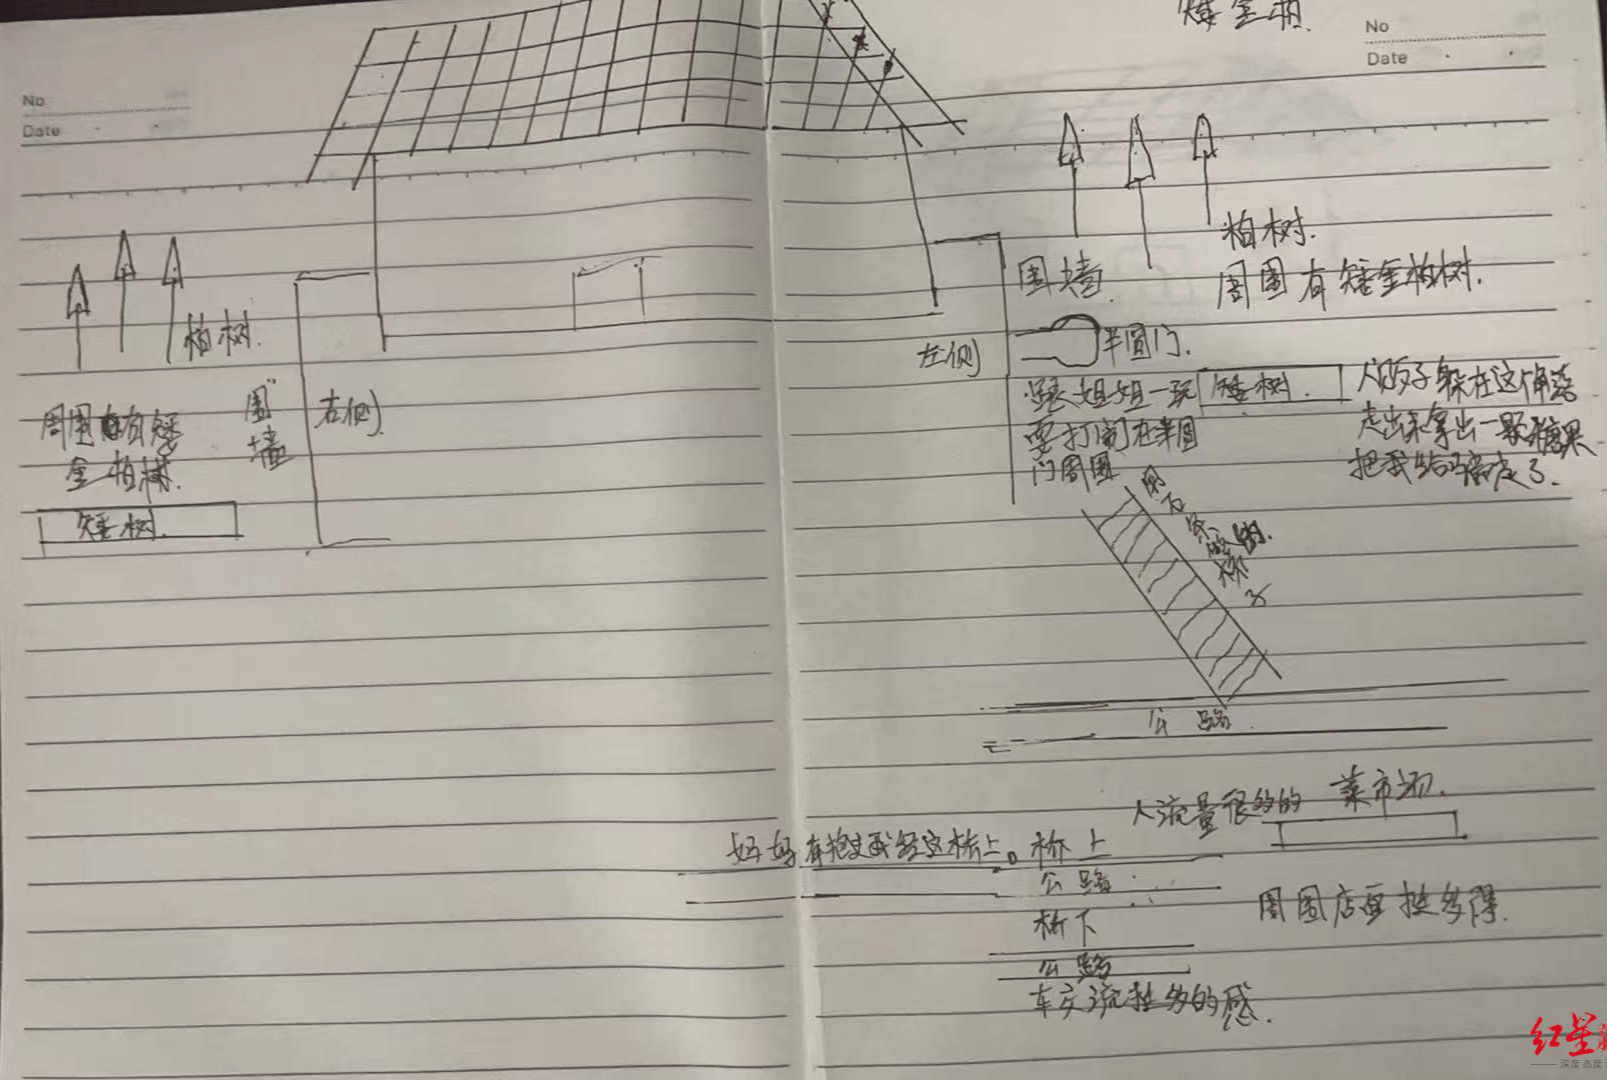 矮金柏.
No
Date
No
Date
柏树.
周围有矮
金柏树.
矮树.
围墙
右侧
柏树.
周围有矮金柏树.
围墙
左侧
半圆门.
跟姐姐一玩
耍打闹在半圆
门周围
矮树.
人贩子躲在这个角落
走出来拿出一颗糖果
把我给骗走了.
公路.
人流量很多的 菜市场.
妈妈有抱过我经这桥上。
桥上
公路
桥下
公路
车交流挺多的感.
周围店面挺多得.
红星
深度 态度